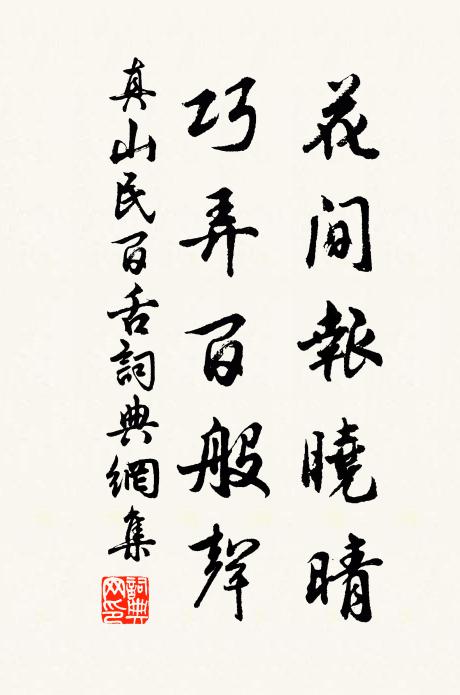 花間報曉晴
巧弄百般聲
真山民百舌詞典網集
詞典網印